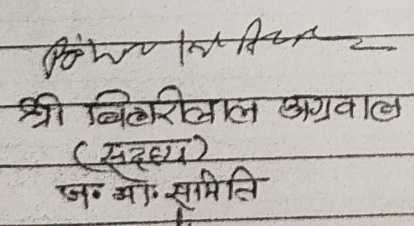 श्री बिहारीलाल अग्रवाल
(सदस्य)
ज॰ भा॰ समिति